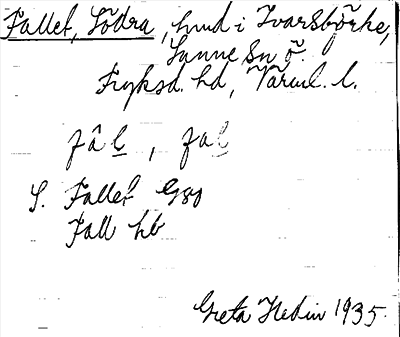 Fallet, Södra, hmd i Ivarsbörke,
Sunne sn ö.
Fryksd. hd, Värml. l.
fâl, fal
S. Fallet G80
Fall hb
Greta Hedin 1935.